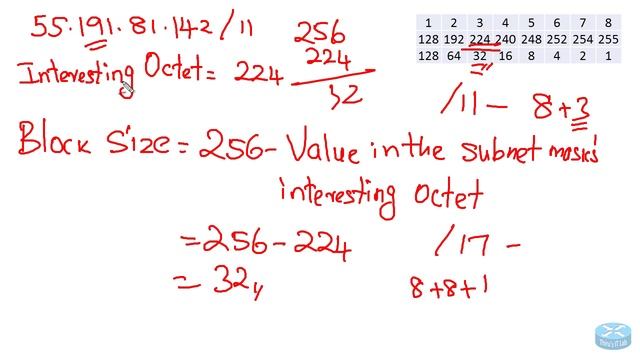 55.191.81.142/11
256
Interesting Octet = 224
224
32
1 2 3 4 5 6 7 8
128 192 224 240 248 252 254 255
128 64 32 16 8 4 2 1
/11 - 8+3
Block Size = 256 - Value in the subnet mask's
interesting Octet
= 256 - 224
/17 -
= 32,
8+8+1
Thiru's IT Lab